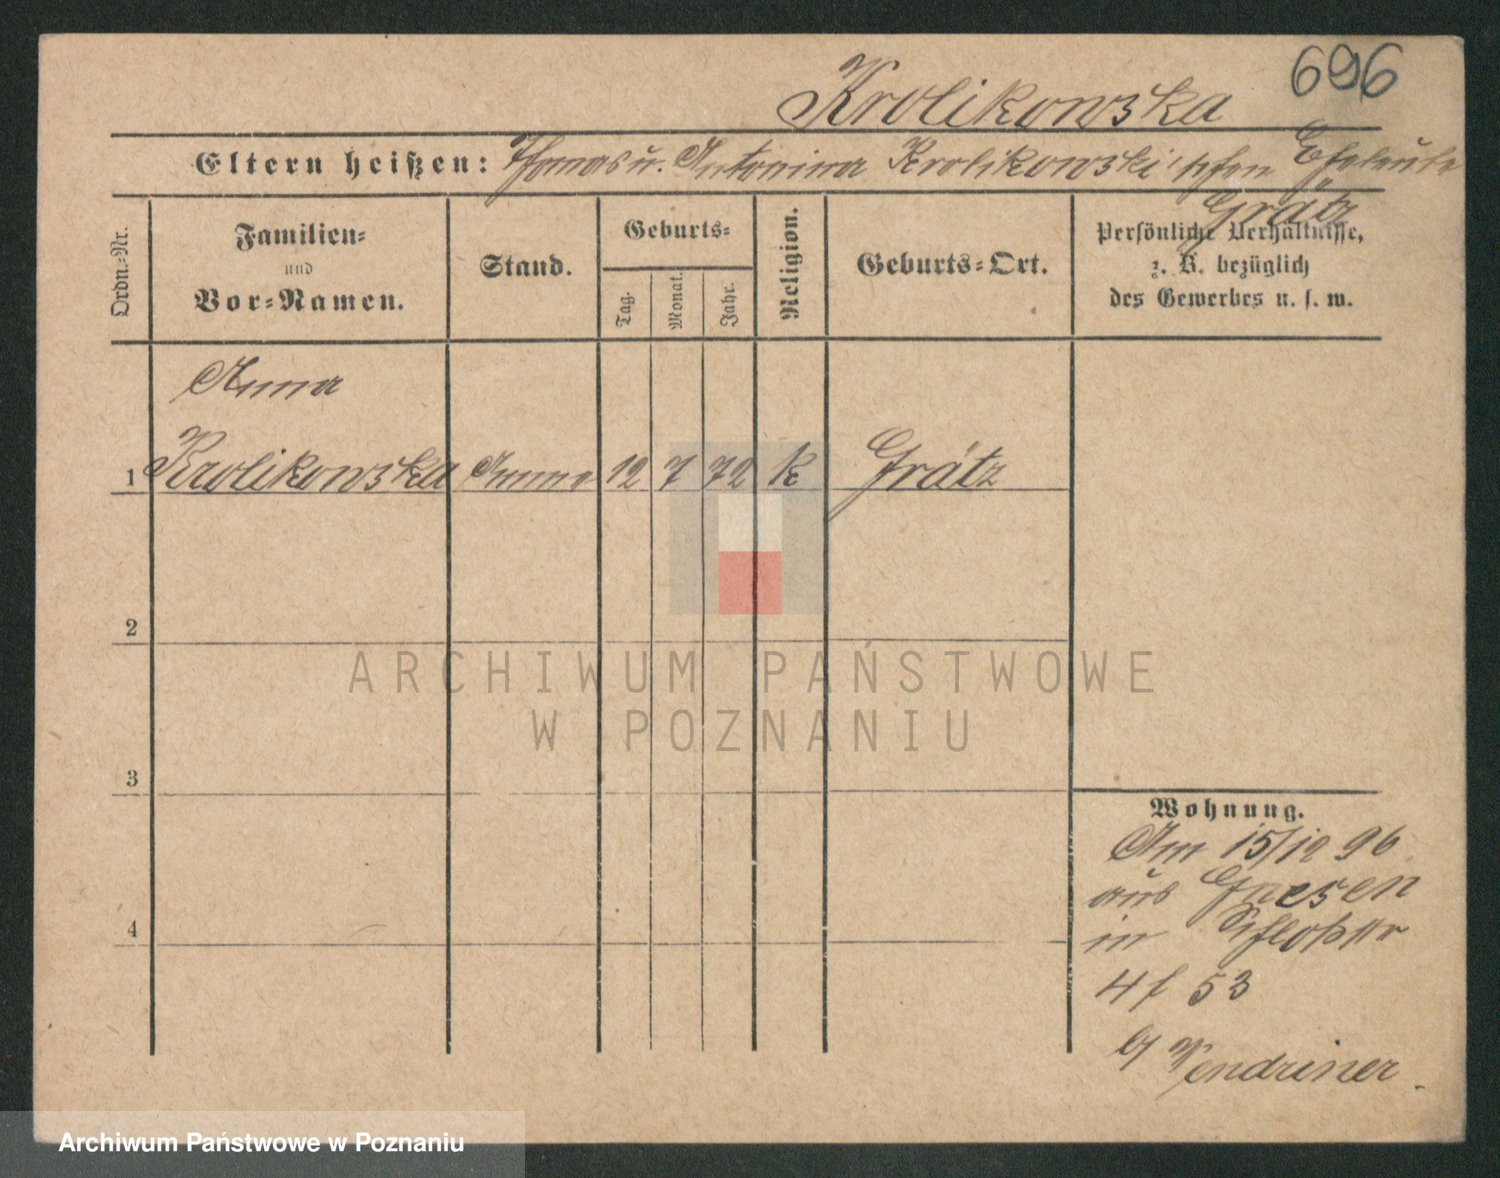 696
Krolikowska
Eltern heißen: Thomas u. Antonina Krolikowski'schen Eheleute
Grätz
Ordn.-Nr.
Familien-
und
Vor-Namen.
Stand.
Geburts-
Tag.
Monat.
Jahr.
Religion.
Geburts-Ort.
Persönliche Verhältnisse,
z. B. bezüglich
des Gewerbes u. s. w.
Anna
1 Krolikowska Amme 12 7 72 k Grätz
2
3
4
Wohnung.
Am 15/12 96
aus Gnesen
in Schloßstr
4 f 53
Wendriner.
ARCHIWUM PAŃSTWOWE
W POZNANIU
Archiwum Państwowe w Poznaniu